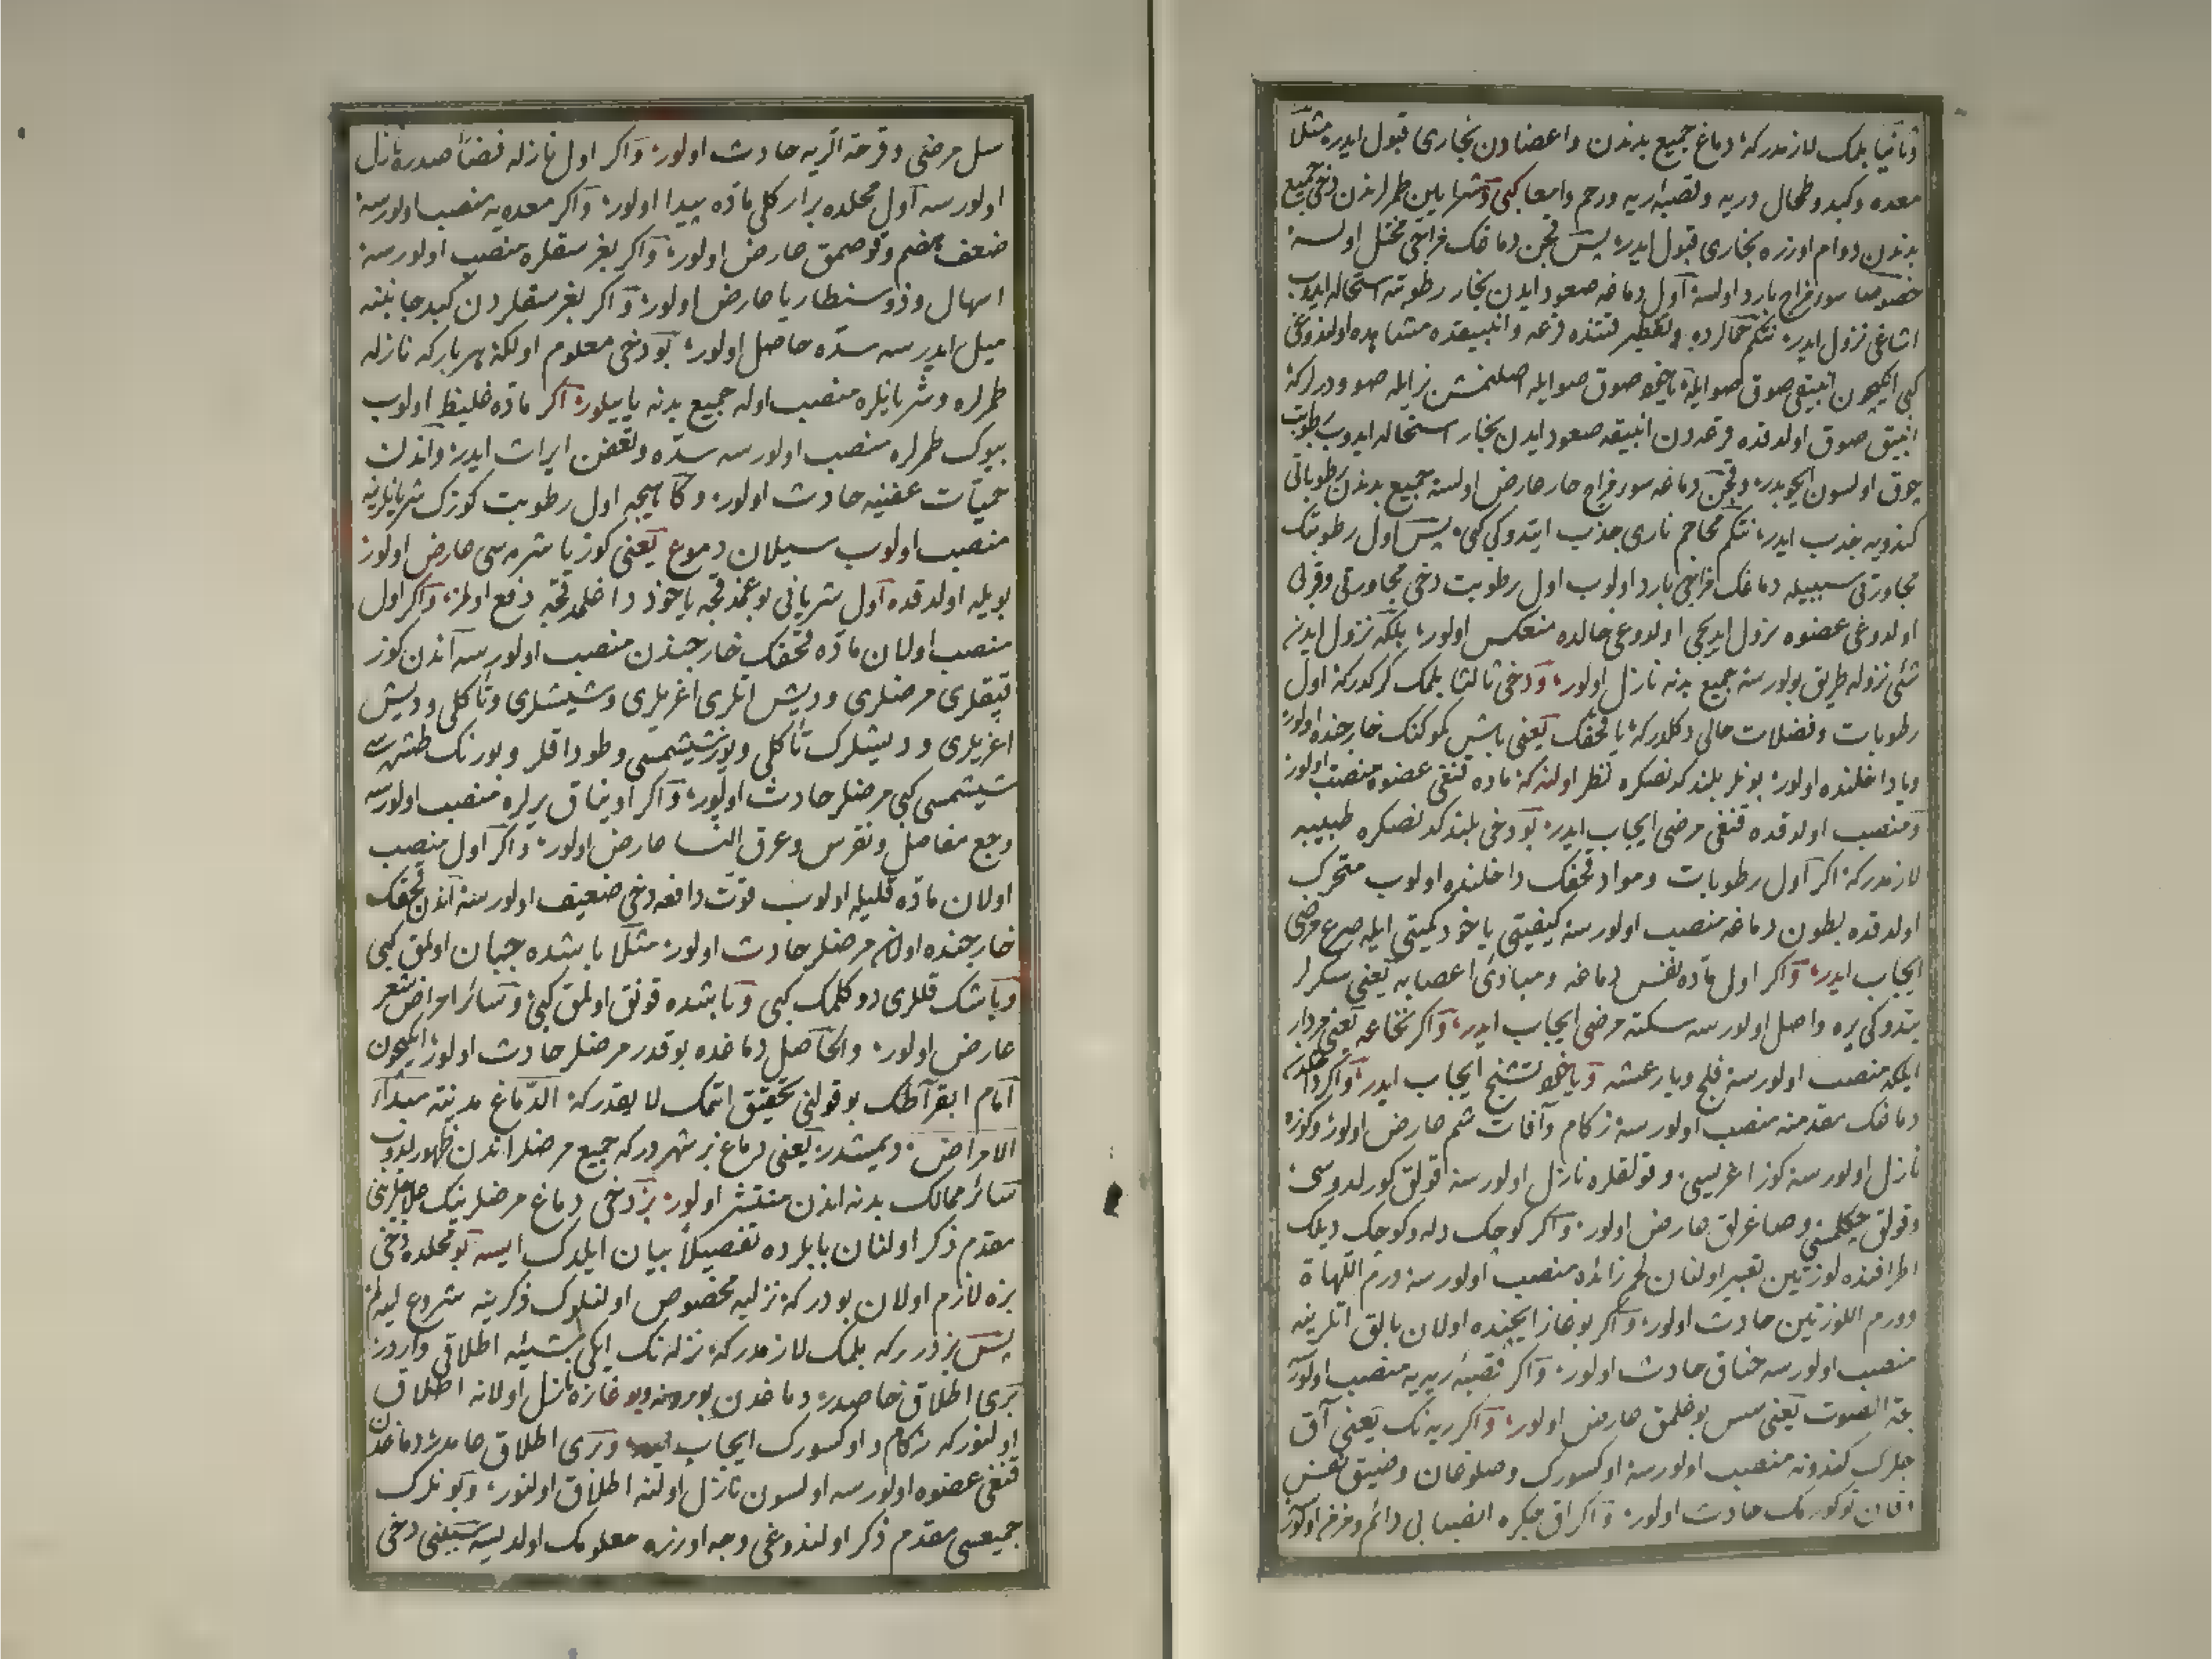 وثانیا بلمک لازمدرکه دماغ جمیع بدندن واعضادن بخاری قبول ایدر مثلا
معده وکبد وطحال وریه وقصبهٔ ریه ورحم وامعا کبی وشرایین طمرلرندن دخی جمیع
بدندن دوام اوزره بخاری قبول ایدر پس قچن دماغک مزاجی مختل اولسه
خصوصا سوء مزاج بارد اولسه اول دماغه صعود ایدن بخار رطوبته استحاله ایدوب
اشاغی نزول ایدر نتکم حمالرده وتقطیر فننده قرعه وانبیقده مشاهده اولندوغی
کبی انکیچون انبیقی صوق صو ایله یاخود صوق صو ایله اصلنمش بز ایله صوودرلرکه
انبیق صوق اولدقده قرعه دن انبیقه صعود ایدن بخار استحاله ایدوب رطوبت
چوق اولسون ایچوندر وقچن دماغه سوء مزاج حار عارض اولسه جمیع بدندن رطوباتی
کندویه جذب ایدر نتکم محاجم ناری جذب ایتدوکی کبی پس اول رطوبتک
مجاورتی سببیله دماغک مزاجی بارد اولوب اول رطوبت دخی مجاورتی وقربی
اولدوغی عضوه نزول ایدیجی اولدوغی حالده منعکس اولور بلکه نزول ایدن
شئی نزوله طریق بولورسه جمیع بدنه نازل اولور ودخی ثالثا بلمک کرکدرکه اول
رطوبات وفضلات خالی دکلدرکه یا قحفک یعنی باش کوکنک خارجنده اولور
ویا داخلنده اولور بونلر بلندکدنصکره نظر اولنه که ماده قنغی عضوه منصب اولور
ومنصب اولدقده قنغی مرضی ایجاب ایدر بو دخی بلندکدنصکره طبیبه
لازمدرکه اکر اول رطوبات ومواد قحفک داخلنده اولوب متحرک
اولدقده بطون دماغه منصب اولورسه کیفیتی یاخود کمیتی ایله صرع مرضی
ایجاب ایدر واکر اول ماده نفس دماغه ومبادی اعصابه یعنی سکرلر
بتدوکی یره واصل اولورسه سکته مرضی ایجاب ایدر واکر نخاعه یعنی مردار
ایلکه منصب اولورسه فلج ویا رعشه ویاخود تشنج ایجاب ایدر واکر
دماغک مقدمنه منصب اولورسه زکام وآفات شم عارض اولور وکوزه
نازل اولورسه کوز اغریسی وقولقلره نازل اولورسه قولق کورلدوسی
وقولق چکلمسی وصاغرلق عارض اولور واکر کوچک دله وکوچک دیلک
اطرافنده لوزتین تعبیر اولنان لحم زائده منصب اولورسه ورم اللهاة
وورم اللوزتین حادث اولور واکر بوغاز ایچنده اولان بالق اتلرینه
منصب اولورسه خناق حادث اولور واکر قصبهٔ ریه یه منصب اولورسه
بحة الصوت یعنی سس بوغلمق عارض اولور واکر ریه نک یعنی آق
جکرک کندونه منصب اولورسه اوکسورک وصلوغان وضیق نفس
وقان توکورمک حادث اولور واکر اق جکره انصبابی دائم ومزمن اولورسه
سل مرضی وقرحهٔ الریه حادث اولور واکر اول نازله فضاء صدره نازل
اولورسه اول محلده برار کلی ماده پیدا اولور واکر معده یه منصب اولورسه
ضعف هضم وقوصمق عارض اولور واکر بغرسقلره منصب اولورسه
اسهال وذوسنطاریا عارض اولور واکر بغرسقلردن کبد جانبنه
میل ایدرسه سده حاصل اولور بو دخی معلوم اولکه هر بارکه نازله
طمرلره وشریانلره منصب اوله جمیع بدنه یاییلور اکر ماده غلیظ اولوب
بیوک طمرلره منصب اولورسه سده وتعفن ایراث ایدر واندن
حمیات عفنیه حادث اولور وکاهیجه اول رطوبت کوزک شریانلرینه
منصب اولوب سیلان دموع یعنی کوز یاشرمسی عارض اولور
بویله اولدقده اول شریانی بوغمدقچه یاخود داغلمدقچه دفع اولمز واکر اول
منصب اولان ماده قحفک خارجندن منصب اولورسه آندن کوز
قپقلری مرضلری ودیش اتلری اغریلری وشیشلری وتأکلی ودیش
اغریلری ودیشلرک تأکلی ویوز شیشمسی وطوداقلر وبورنک طشره سی
شیشمسی کبی مرضلر حادث اولور واکر اویناق یرلره منصب اولورسه
وجع مفاصل ونقرس وعرق النسا عارض اولور واکر اول منصب
اولان ماده قلیله اولوب قوت دافعه دخی ضعیف اولورسه آندن قحفک
خارجنده اولان مرضلر حادث اولور مثلا باشده چبان اولمق کبی
وباشک قللری دوکلمک کبی وباشده قونق اولمق کبی وسائر امراض شعر
عارض اولور والحاصل دماغده بو قدر مرضلر حادث اولور انکیچون
امام ابقراطک بو قولنی تحقیق اتمک لایقدرکه الدماغ مدینة مبداء
الامراض دیمشدر یعنی دماغ بر شهردرکه جمیع مرضلر اندن ظهور ایدوب
سائر ممالک بدنه اندن منتشر اولور بز دخی دماغ مرضلرینک علاجلرینی
مقدم ذکر اولنان بابلرده تفصیلا بیان ایلدک ایسه بو محلده دخی
بزه لازم اولان بودرکه نزلیه مخصوص اولنلرک ذکرینه شروع ایده لم
پس بز دررکه بلمک لازمدرکه نزله نک ایکی شیئه اطلاقی واردر
بری اطلاق خاصدر دماغدن بورونه وبوغازه نازل اولانه اطلاق
اولنورکه زکام واوکسورک ایجاب ایدر وبری اطلاق عامدر دماغدن
قنغی عضوه اولورسه اولسون نازل اولنه اطلاق اولنور وبونلرک
جمیعسی مقدم ذکر اولندوغی وجه اوزره معلومک اولدیسه سببنی دخی